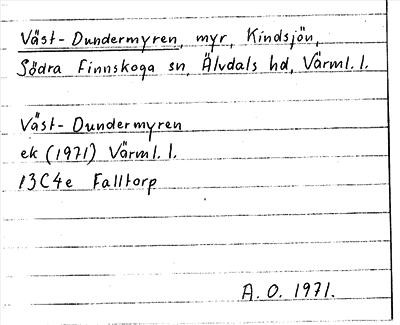 Väst-Dundermyren, myr, Kindsjön,
Södra Finnskoga sn, Älvdals hd, Värml. l.
Väst-Dundermyren
ek (1971) Värml. l.
13C4e Falltorp
A. O. 1971.